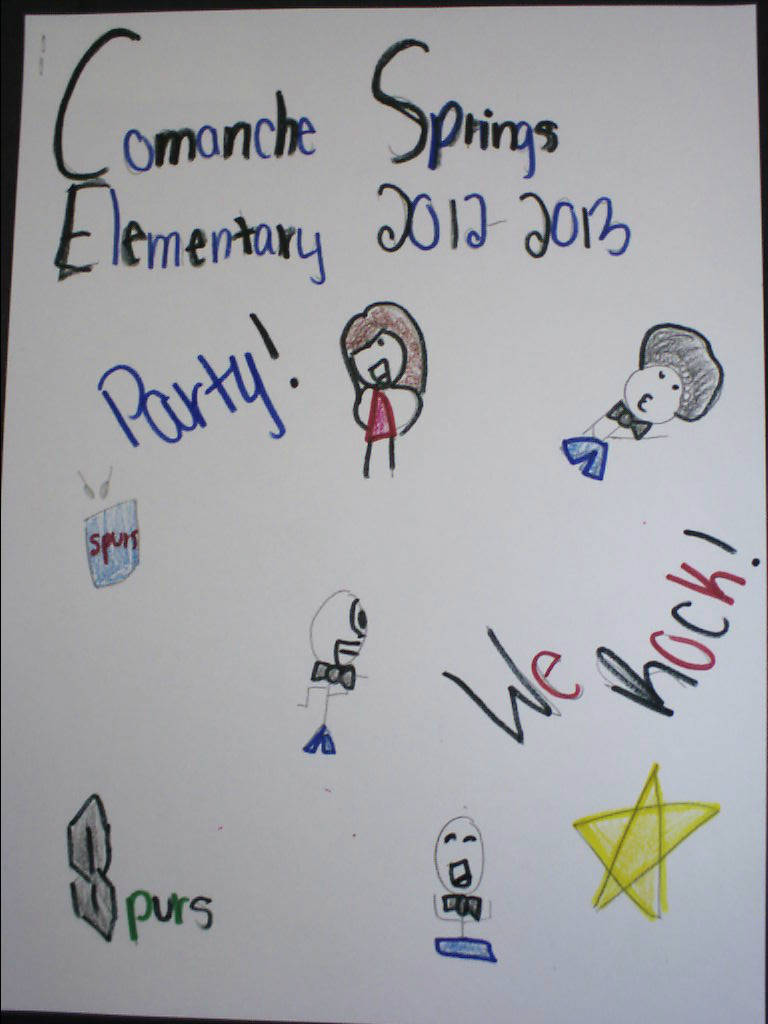 Comanche Springs
Elementary 2012-2013
Party!
spurs
We Rock!
Spurs